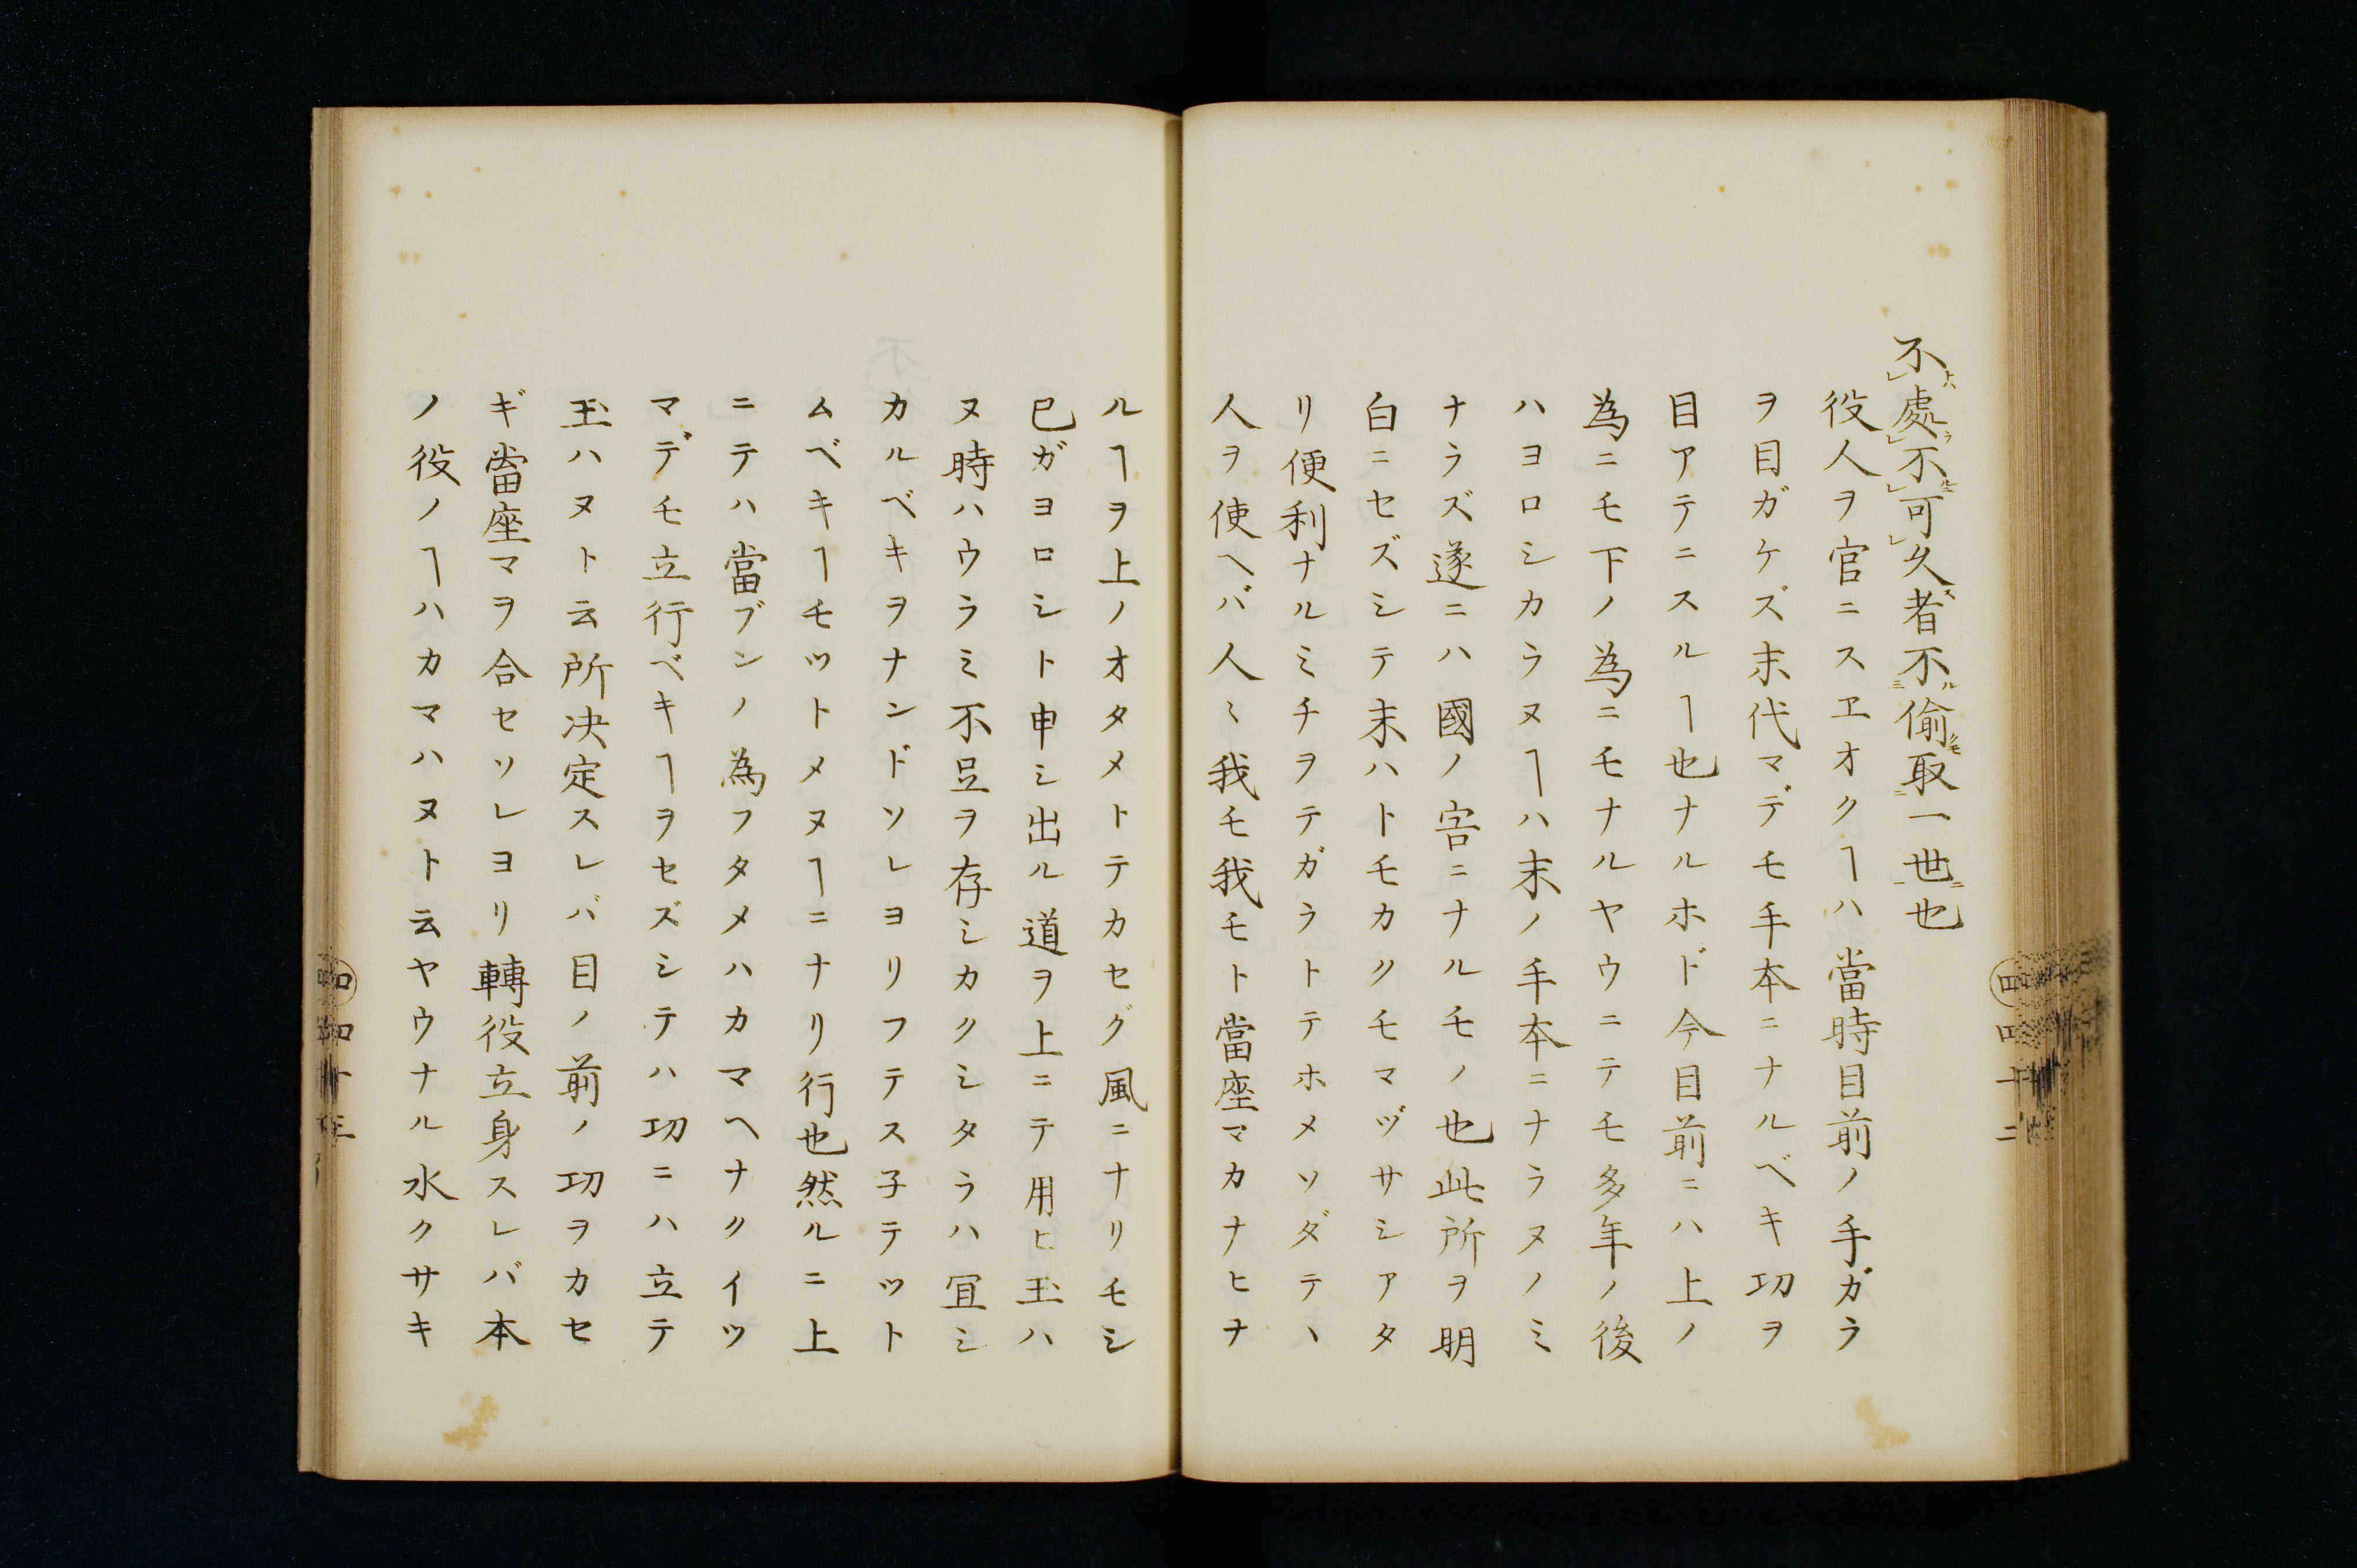 不處不可久者不偷取一世也
役人ヲ官ニスヱオクヿハ當時目前ノ手ガラ
ヲ目ガケズ末代マデモ手本ニナルベキ功ヲ
目アテニスルヿ也ナルホド今目前ニハ上ノ
為ニモ下ノ為ニモナルヤウニテモ多年ノ後
ハヨロシカラヌヿハ末ノ手本ニナラヌノミ
ナラズ遂ニハ國ノ害ニナルモノ也此所ヲ明
白ニセズシテ末ハトモカクモマヅサシアタ
リ便利ナルミチヲテガラトテホメソダテヽ
人ヲ使ヘバ人〻我モ我モト當座マカナヒナ
ルヿヲ上ノオタメトテカセグ風ニナリモシ
已ガヨロシト申シ出ル道ヲ上ニテ用ヒ玉ハ
ヌ時ハウラミ不足ヲ存シカクシタラハ冝シ
カルベキヲナンドソレヨリフテス子テツト
ムベキヿモツトメヌヿニナリ行也然ルニ上
ニテハ當ブンノ為フタメハカマヘナクイツ
マデモ立行ベキヿヲセズシテハ功ニハ立テ
玉ハヌト云所决定スレバ目ノ前ノ功ヲカセ
ギ當座マヲ合セソレヨリ轉役立身スレバ本
ノ役ノヿハカマハヌト云ヤウナル水クサキ
四四十二